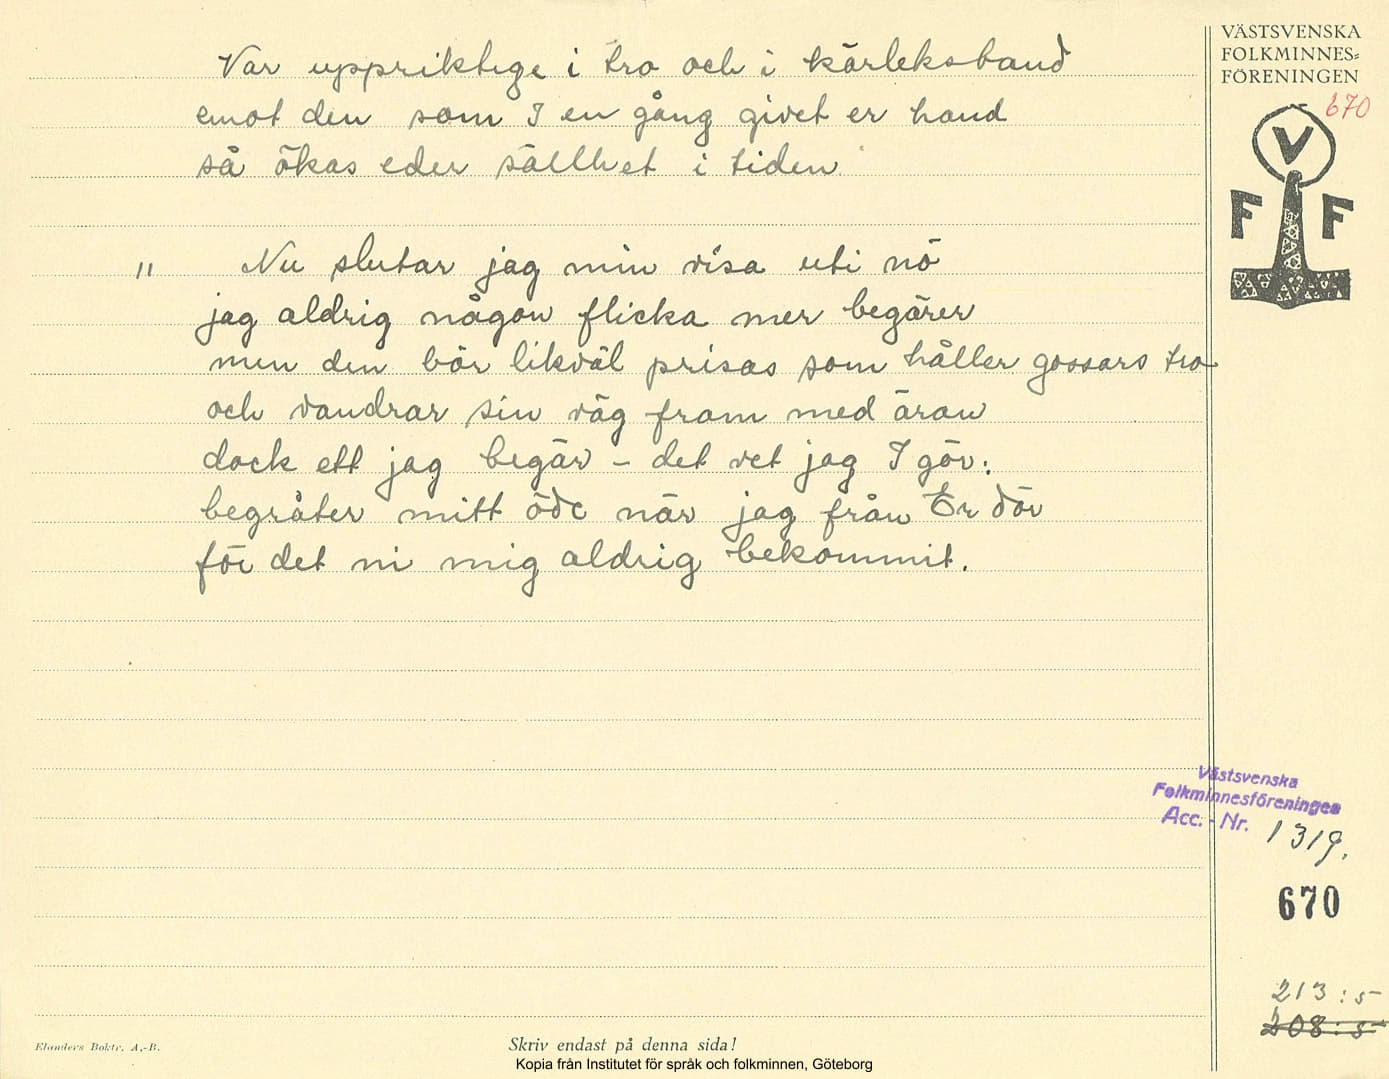 VÄSTSVENSKA
FOLKMINNES-
FÖRENINGEN
670
V
F F
Var uppriktige i tro och i kärleksband
emot den som I en gång givet er hand
så ökas eder sällhet i tiden
11 Nu slutar jag min visa uti nö
jag aldrig någon flicka mer begärer
men den bör likväl prisas som håller gossars tro
och vandrar sin väg fram med äran
dock ett jag begär - det vet jag I gör:
begråter mitt öde när jag från Er dör
för det ni mig aldrig bekommit.
Västsvenska
Folkminnesföreningen
Acc.-Nr. 1319.
670
213:5
208:5
Elanders Boktr. A.-B.
Skriv endast på denna sida!
Kopia från Institutet för språk och folkminnen, Göteborg